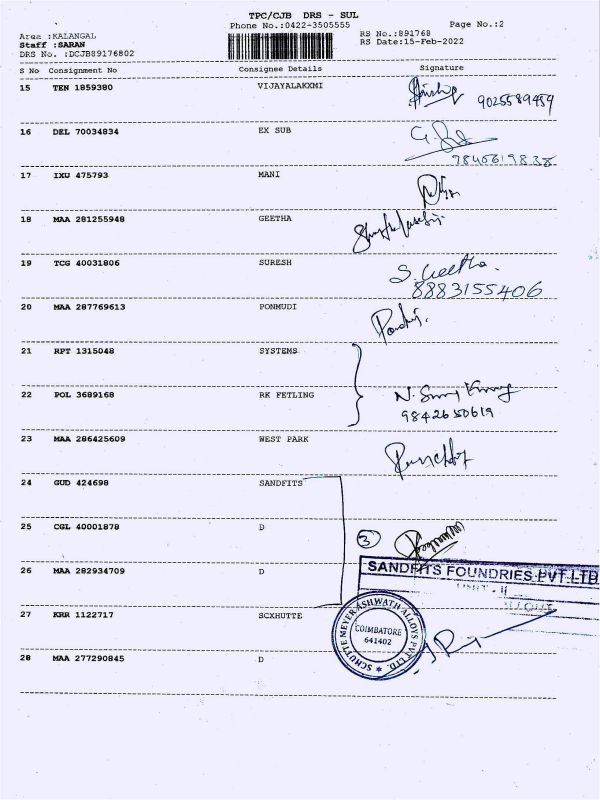 TPC/CJB DRS - SUL
Phone No.:0422-3505555
Page No.:2
Area :KALANGAL
RS No.:891768
Staff :SARAN
RS Date:15-Feb-2022
DRS No. :DCJB89176802
S No Consignment No Consignee Details Signature
15 TEN 1859380 VIJAYALAKXMI
9025589489
16 DEL 70034834 EX SUB
9846619838
17 IXU 475793 MANI
18 MAA 281255948 GEETHA
19 TCG 40031806 SURESH
S. Geetha.
8883155406
20 MAA 287769613 PONMUDI
21 RPT 1315048 SYSTEMS
22 POL 3689168 RK FETLING
9842650619
23 MAA 286425609 WEST PARK
24 GUD 424698 SANDFITS
25 CGL 40001878 D
3
26 MAA 282934709 D
SANDFITS FOUNDRIES PVT LTD
UNIT - II
27 KRR 1122717 SCXHUTTE
SCHUTTE MEYER ASHWATH ALLOYS PVT LTD.
COIMBATORE
641402
28 MAA 277290845 D